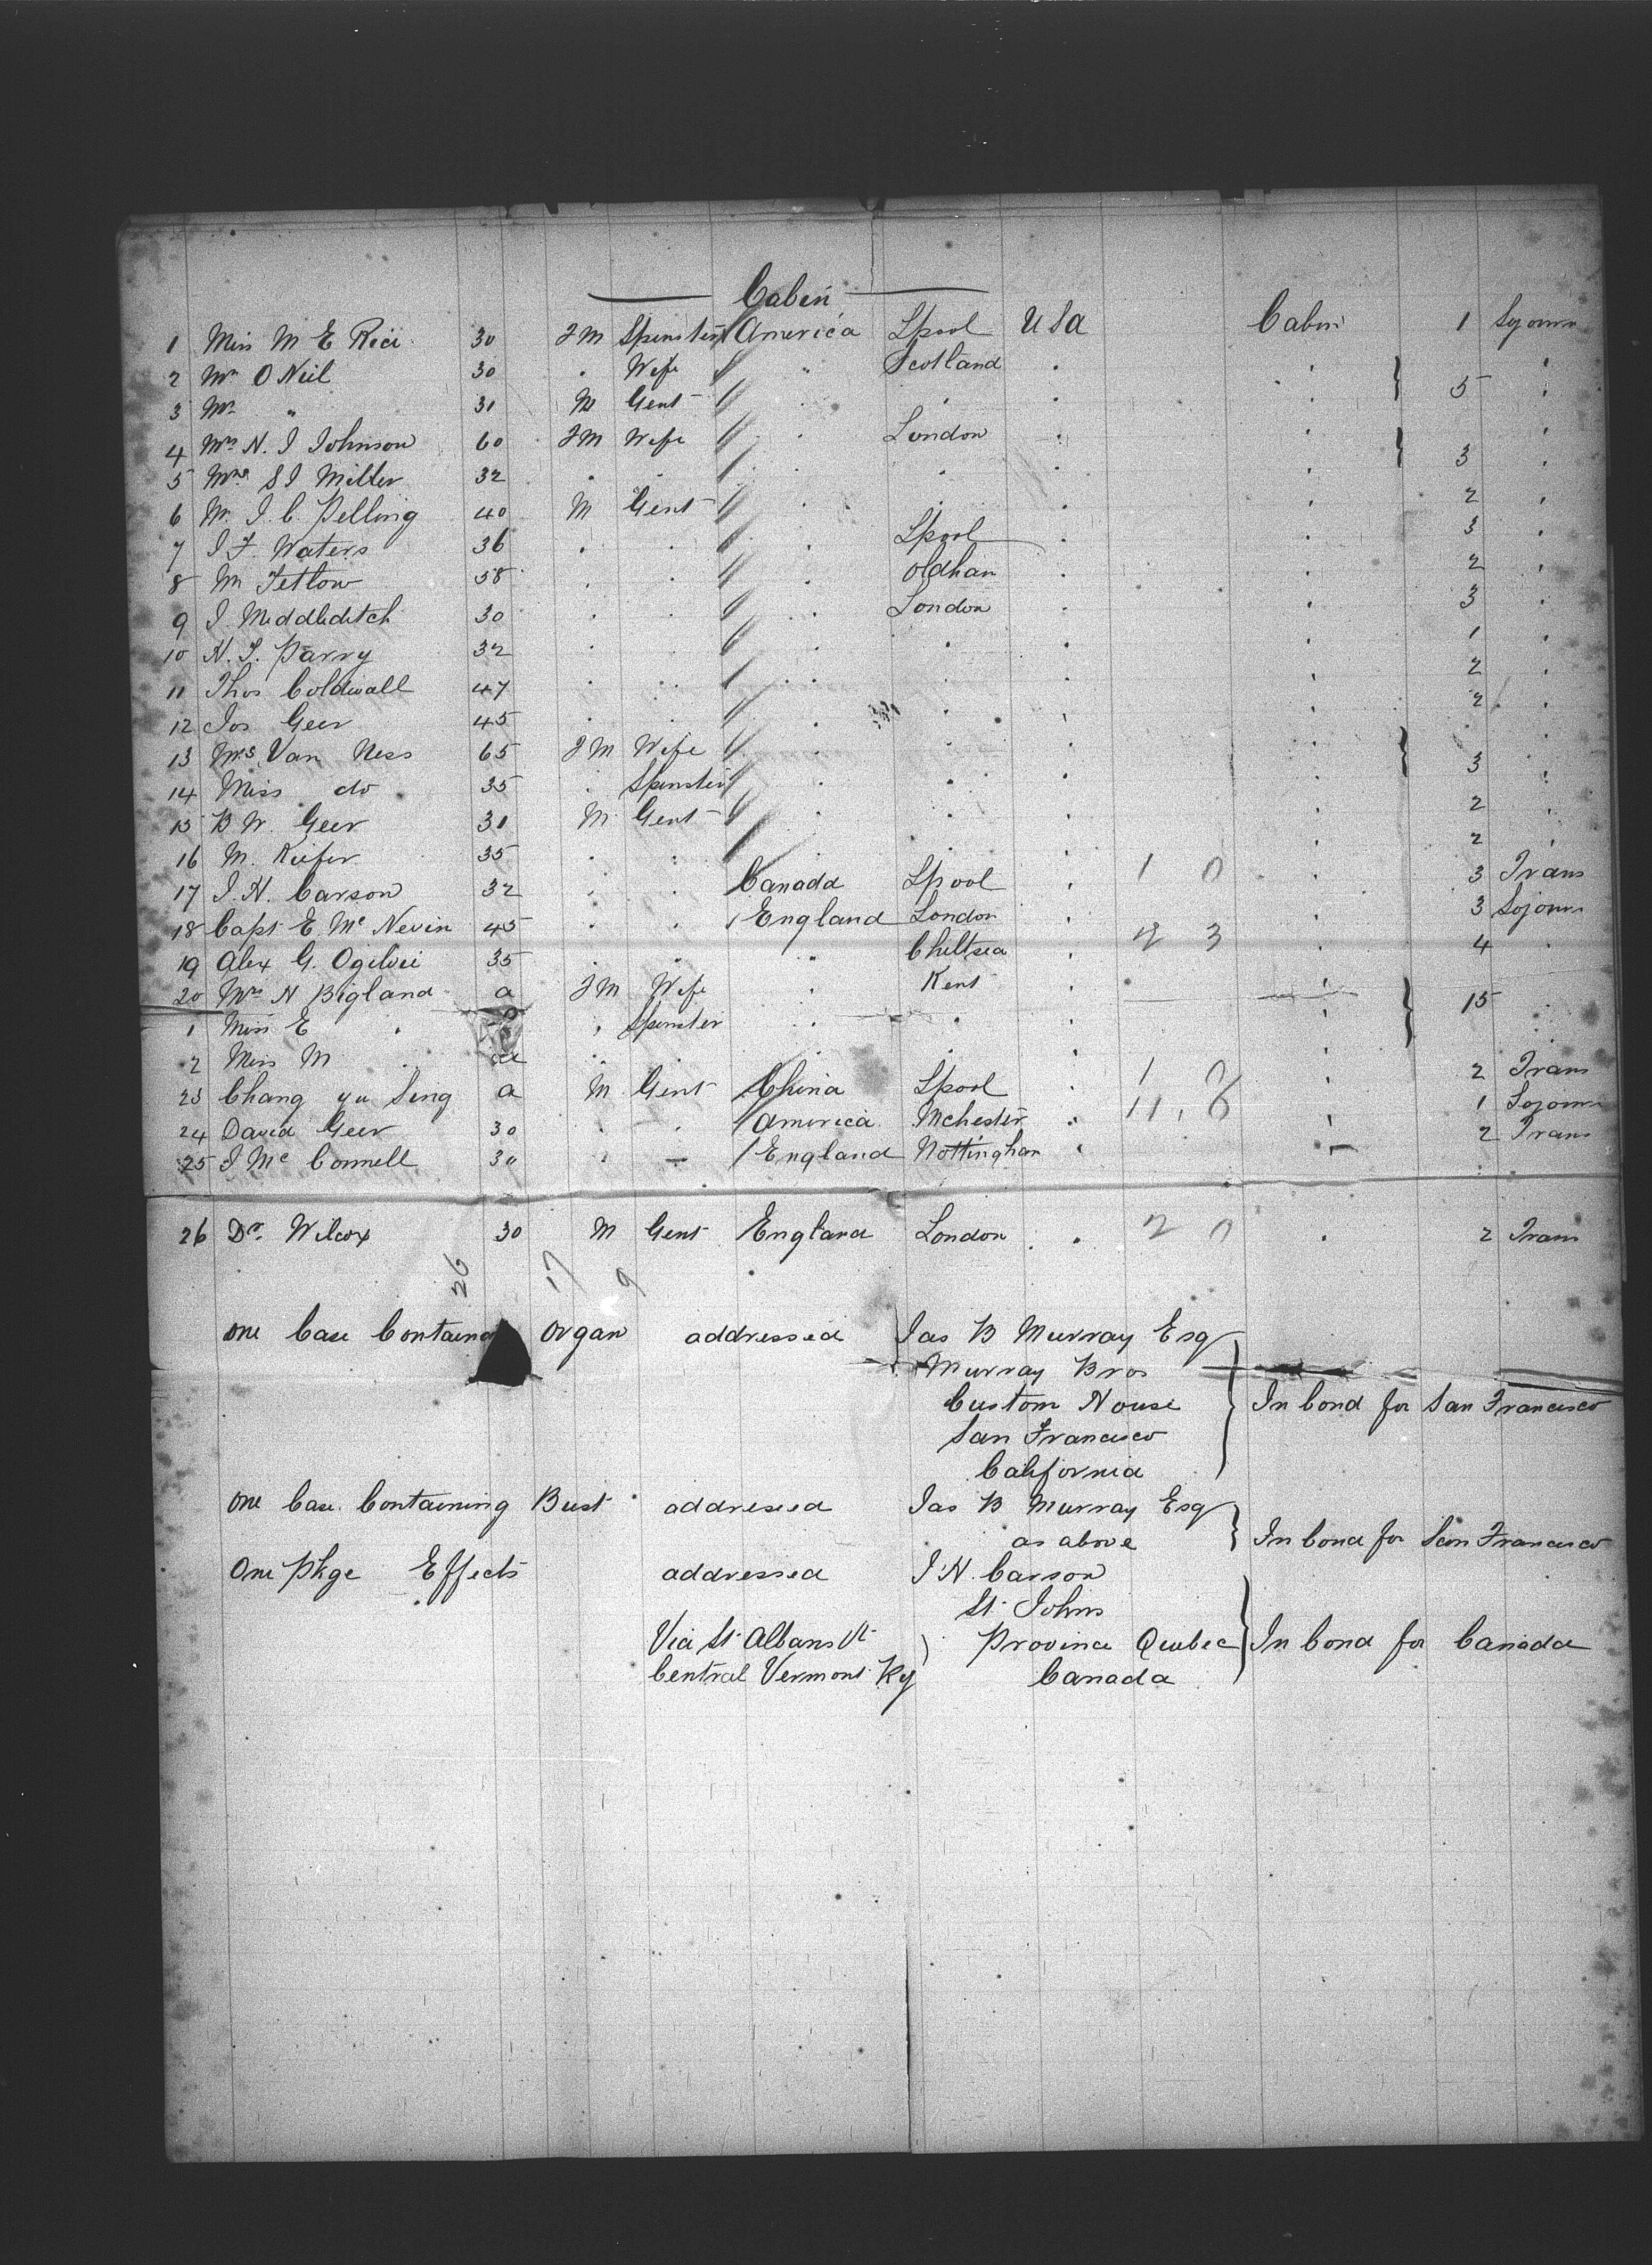 Cabin
1 Miss M E Rice 30 F M Spinster America Lpool U S a Cabin 1 Sojourn
2 Mrs O Neil 30 . Wife " Scotland . .
3 Mr " 31 M Gent . . . 5 .
4 Mrs N. J Johnson 60 F M Wife . London . .
5 Mrs S J Miller 32 . . . . . 3 .
6 Mr J. C. Pelling 40 M Gent . . . 2 .
7 J F. Waters 36 . . . Lpool . 3 .
8 M Tetlow 58 . . . Oldham . 2 .
9 J. Middleditch 30 . . . London . 3 .
10 H. J. Parry 32 . . . . . 1 .
11 Thos Coldwall 47 . . . . . 2 .
12 Jos Geer 45 . . . . . 2 .
13 Mrs Van Ness 65 F M Wife . . . .
14 Miss do 35 . Spinster . . . 3 .
15 B W. Geer 31 M Gent . . . 2 .
16 M. Kiefer 35 . . . . . 2 .
17 J. H. Carson 32 . . Canada Lpool . 1 0 . 3 Trans
18 Capt E. Mc Nevin 45 . . England London . . 3 Sojourn
19 Alex G. Ogilvie 35 . . " Cheltsea . 2 3 . 4 .
20 Mrs H Bigland a F M Wife . Kent . .
1 Miss E . . Spinster . . . . 15 .
2 Miss M . a . . . . . .
23 Chang yu Sing a M Gent China Lpool . 1 0 . 2 Trans
24 David Geer 30 . . America Mchester . 11 . 1 Sojourn
25 J Mc Connell 30 . — England Nottingham . . 2 Trans
26 Dr. Wilcox 30 M Gent England London . 2 0 . 2 Trans
26 17 9
One Case Containing Organ addressed Jas B Murray Esq
Murray Bros
Custom House In bond for San Francisco
San Francisco
California
One Case Containing Bust addressed Jas B Murray Esq
as above In bond for San Francisco
One Pkge Effects addressed J H. Carson
St. Johns
Via St. Albans Vt Province Quebec In bond for Canada
Central Vermont Ry Canada